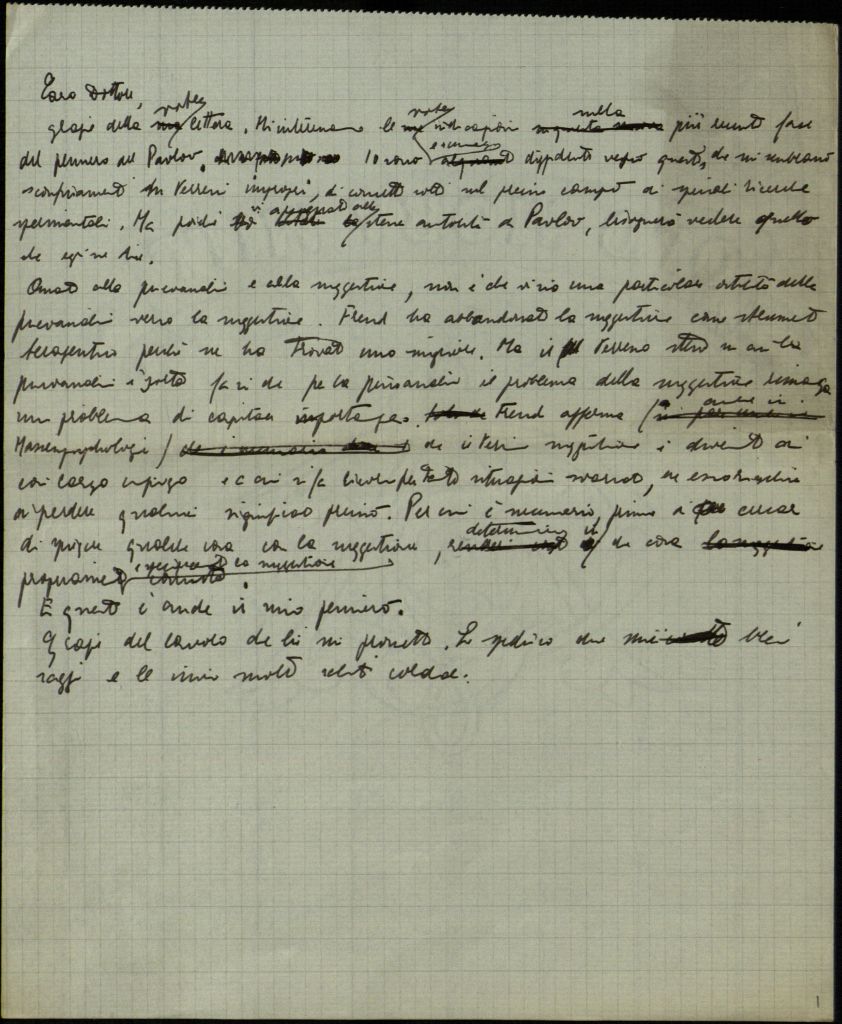 Caro Dottore,
grazie della vostra lettera. Mi interessano le vostre indicazioni sulla più recente fase
del pensiero del Pavlov. Io sono diffidente verso questi, che mi sembrano
sconfinamenti in terreni impropri, di concetti sul preciso campo di speciali ricerche
sperimentali. Ma poiché stessa autorità di Pavlov, bisognerà vedere quello
che egli ne dice.
Quanto alla psicoanalisi e alla suggestione, non è che vi sia una particolare ostilità della
psicoanalisi verso la suggestione. Freud ha abbandonato la suggestione come strumento
terapeutico perché ne ha trovato uno migliore. Ma il terreno stesso su cui la
psicoanalisi è fa sì che per la psicoanalisi il problema della suggestione rimanga
un problema di capitale importanza. Freud afferma (anche in
Massenpsychologie) che il termine suggestione è diventato di
così largo impiego e a cui si fa ricorso per tante svariate, che
di perdere qualsiasi significato preciso. Per cui è necessario, prima di cercare
di spiegare qualche cosa con la suggestione, determinare che cosa
propriamente la suggestione.
E questo è anche il mio pensiero.
Grazie del lavoro che Lei mi promette. Le spedisco due miei
saggi e Le invio molti saluti cordiali.
1